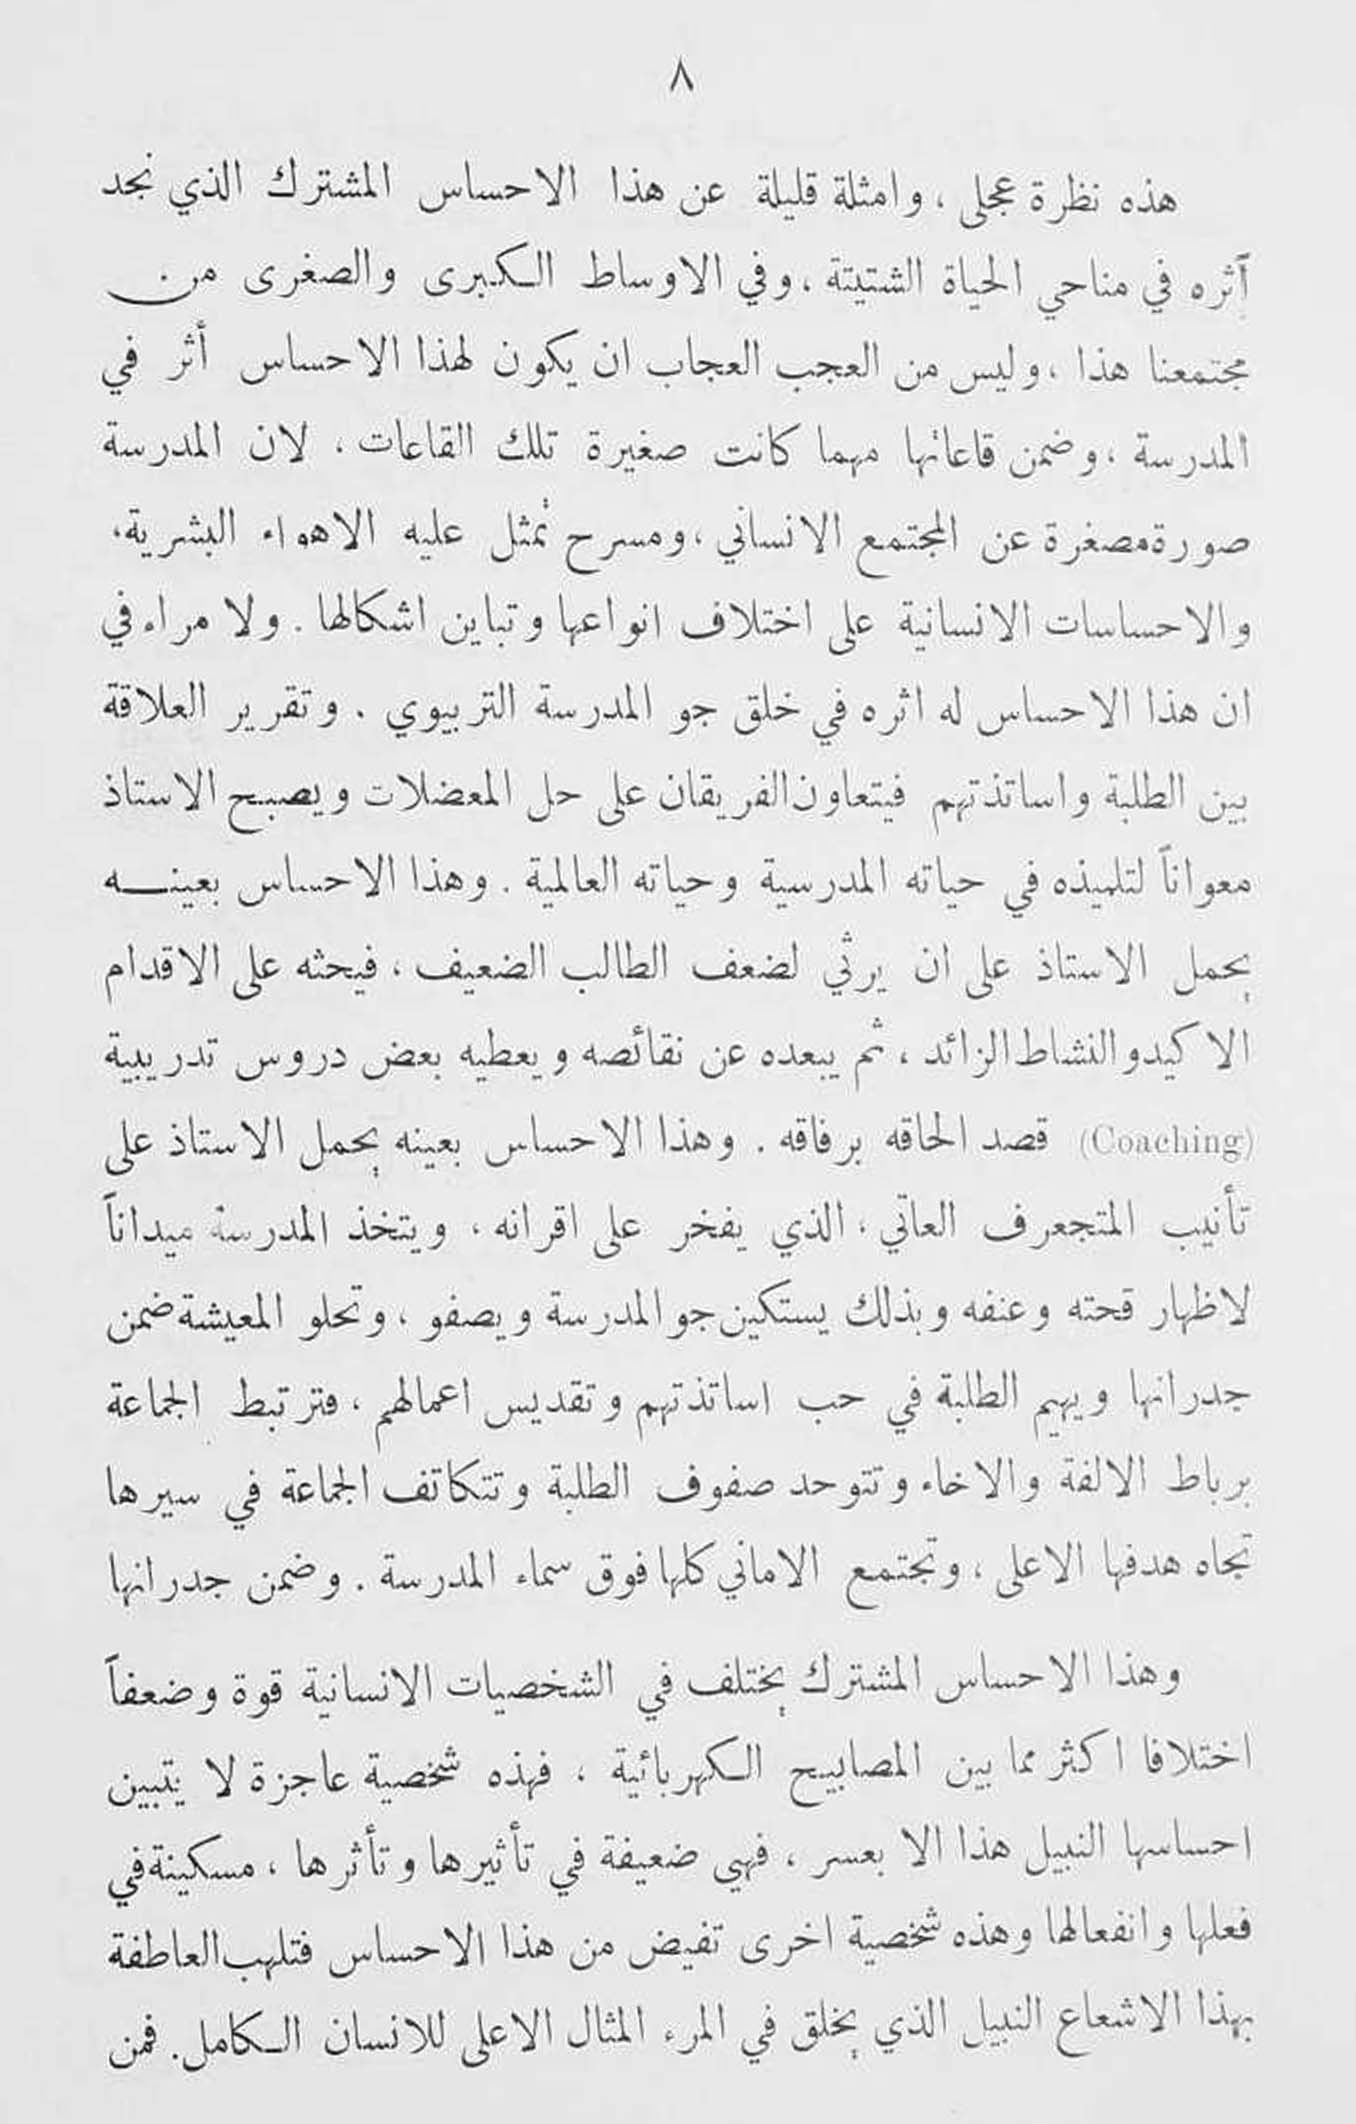 ٨
هذه نظرة عجلى ، وامثلة قليلة عن هذا الاحساس المشترك الذي نجد
أثره في مناحي الحياة الشتيتة ، وفي الاوساط الكبرى والصغرى من
مجتمعنا هذا ، وليس من العجب العجاب ان يكون لهذا الاحساس أثر في
المدرسة ، وضمن قاعاتها مهما كانت صغيرة تلك القاعات ، لان المدرسة
صورة مصغرة عن المجتمع الانساني ، ومسرح تمثل عليه الاهواء البشرية،
والاحساسات الانسانية على اختلاف انواعها وتباين اشكالها . ولا مراء في
ان هذا الاحساس له اثره في خلق جو المدرسة التربيوي . وتقرير العلاقة
بين الطلبة واساتذتهم فيتعاون الفريقان على حل المعضلات ويصبح الاستاذ
معواناً لتلميذه في حياته المدرسية وحياته العالمية . وهذا الاحساس بعينه
يحمل الاستاذ على ان يرثي لضعف الطالب الضعيف ، فيحثه على الاقدام
الاكيد والنشاط الزائد ، ثم يبعده عن نقائصه ويعطيه بعض دروس تدريبية
(Coaching) قصد الحاقه برفاقه . وهذا الاحساس بعينه يحمل الاستاذ على
تأنيب المتجعرف العاتي ، الذي يفخر على اقرانه ، ويتخذ المدرسة ميداناً
لاظهار قحته وعنفه وبذلك يستكين جو المدرسة ويصفو ، وتحلو المعيشة ضمن
جدرانها ويهيم الطلبة في حب اساتذتهم وتقديس اعمالهم ، فترتبط الجماعة
برباط الالفة والاخاء وتتوحد صفوف الطلبة وتتكاتف الجماعة في سيرها
تجاه هدفها الاعلى ، وتجتمع الاماني كلها فوق سماء المدرسة . وضمن جدرانها
وهذا الاحساس المشترك يختلف في الشخصيات الانسانية قوة وضعفاً
اختلافا اكثر مما بين المصابيح الكهربائية ، فهذه شخصية عاجزة لا يتبين
احساسها النبيل هذا الا بعسر ، فهي ضعيفة في تأثيرها وتأثرها ، مسكينة في
فعلها وانفعالها وهذه شخصية اخرى تفيض من هذا الاحساس فتلهب العاطفة
بهذا الاشعاع النبيل الذي يخلق في المرء المثال الاعلى للانسان الكامل. فمن